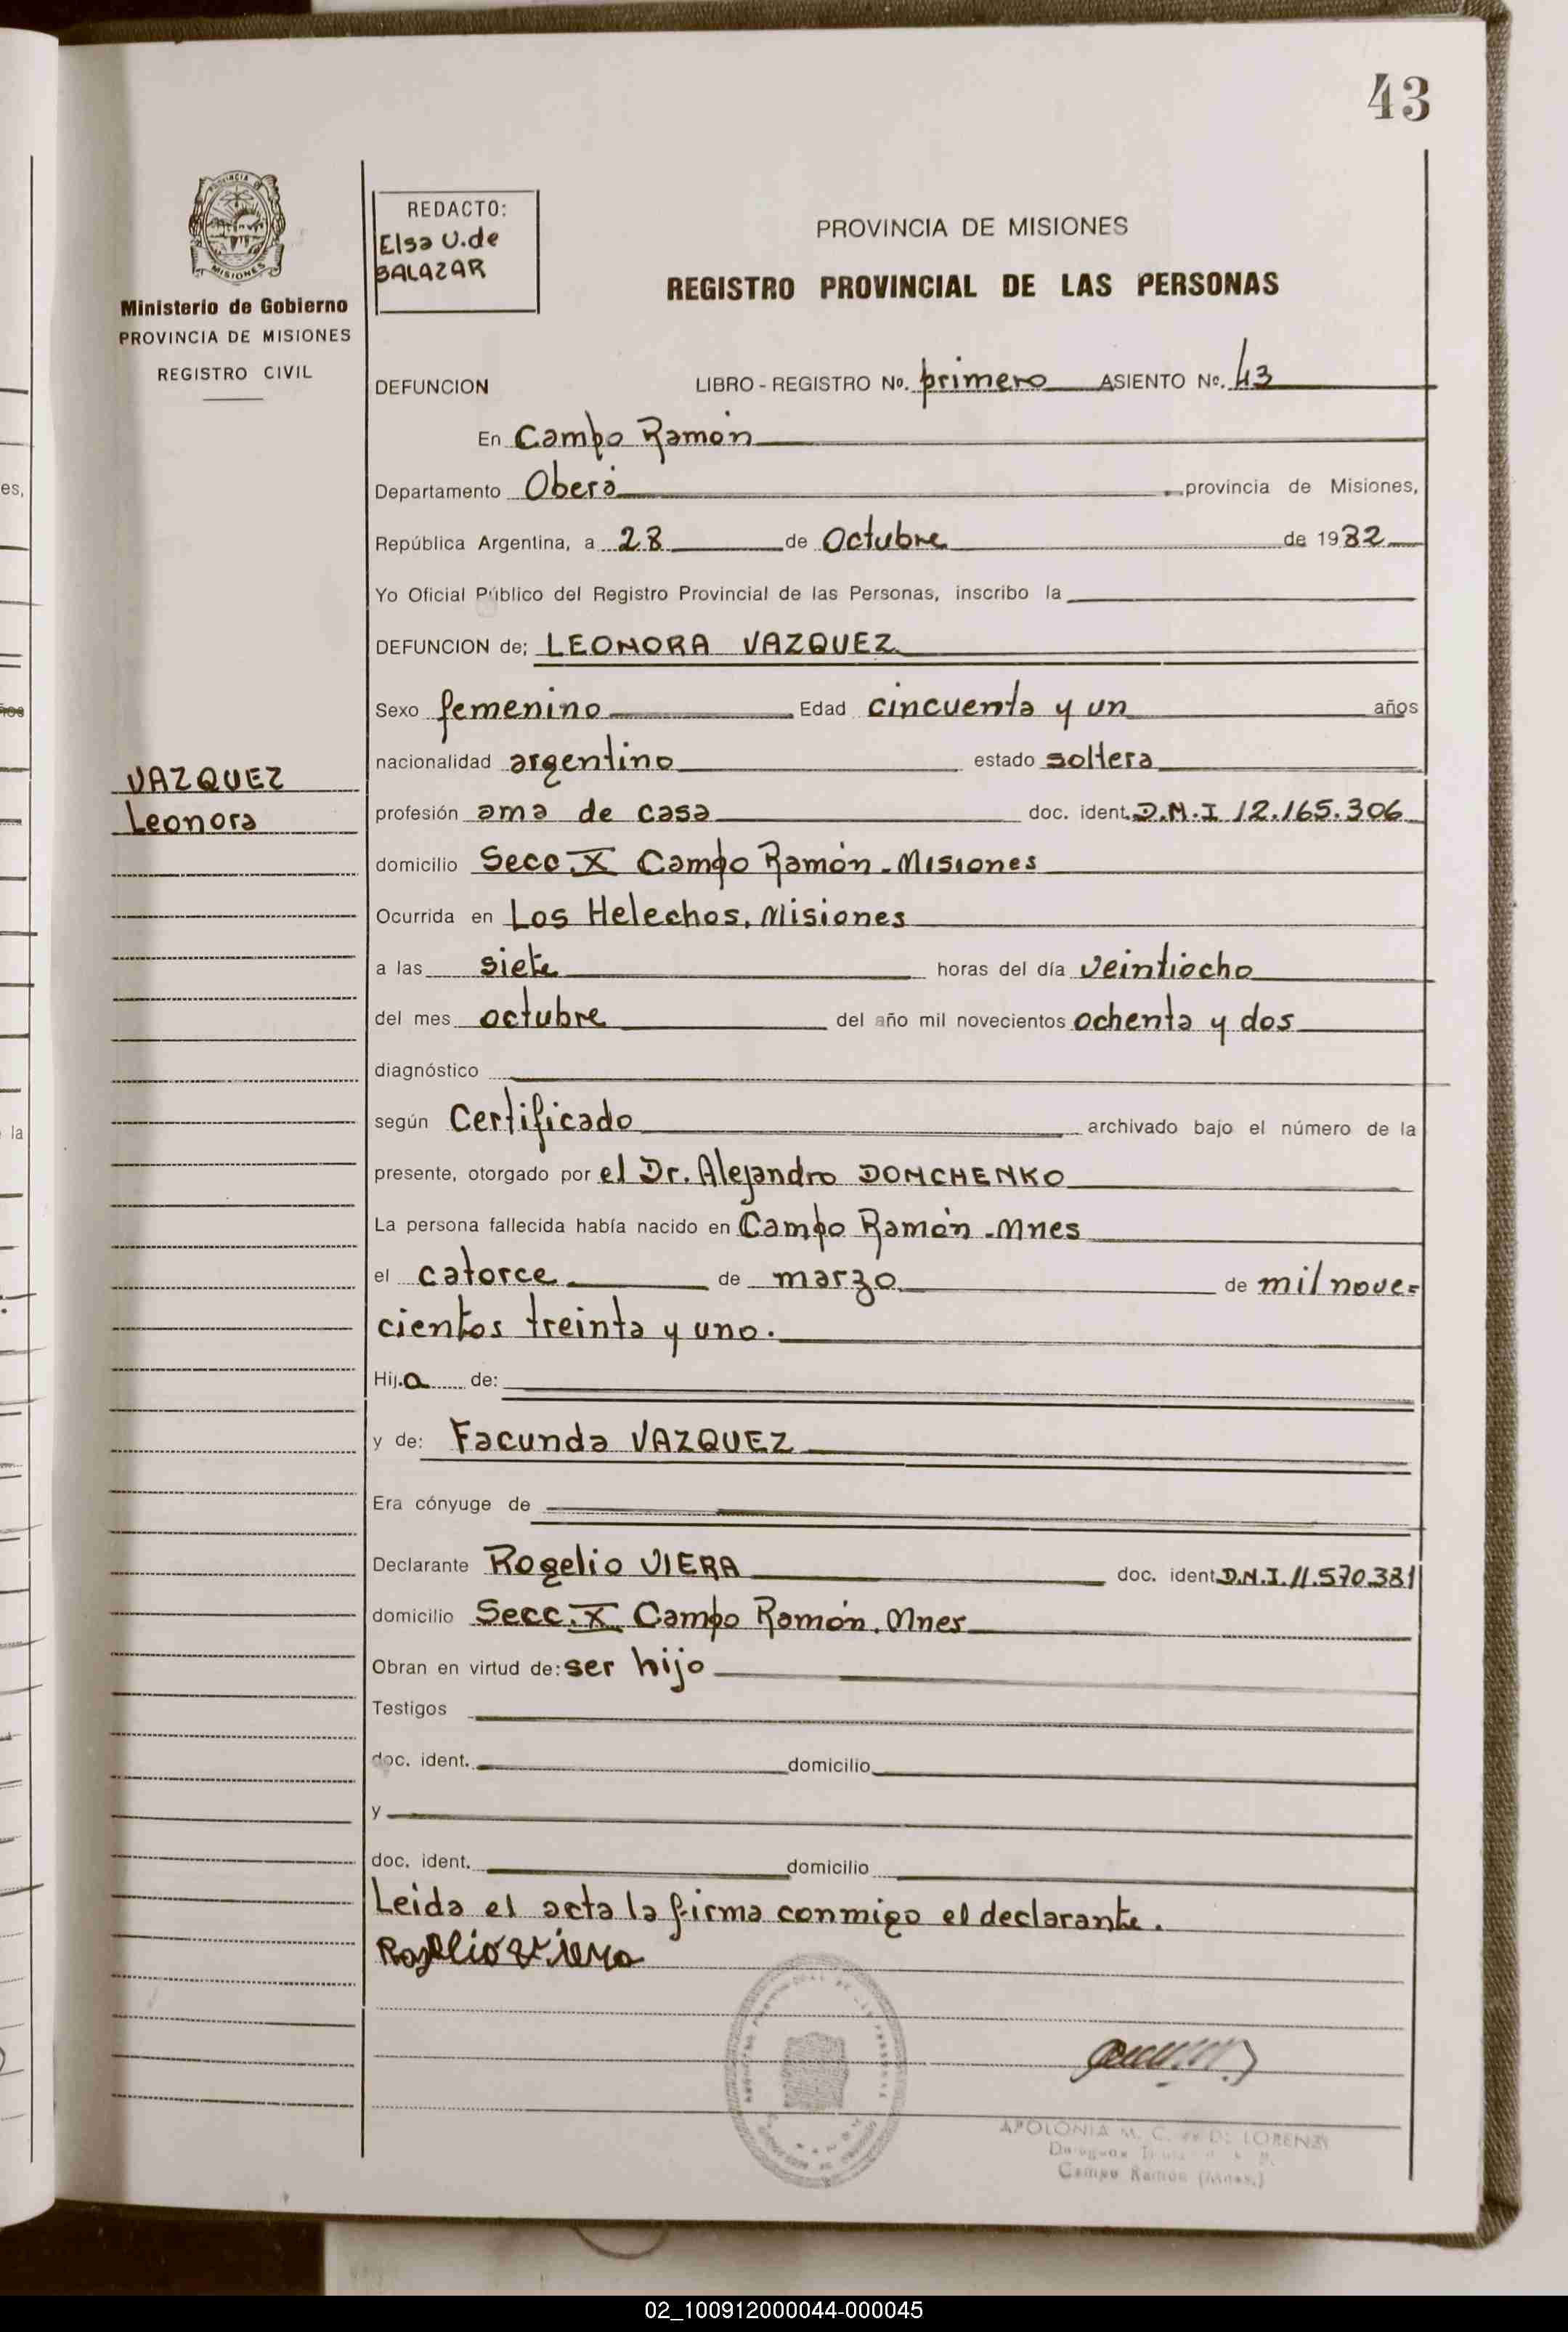 43
PROVINCIA DE
MISIONES
Ministerio de Gobierno
PROVINCIA DE MISIONES
REGISTRO CIVIL
REDACTO:
Elsa U. de
SALAZAR
PROVINCIA DE MISIONES
REGISTRO PROVINCIAL DE LAS PERSONAS
DEFUNCION LIBRO - REGISTRO No. primero ASIENTO No. 43
En Campo Ramón
Departamento Oberá provincia de Misiones,
República Argentina, a 28 de Octubre de 1982
Yo Oficial Público del Registro Provincial de las Personas, inscribo la
DEFUNCION de; LEONORA VAZQUEZ
Sexo femenino Edad cincuenta y un años
nacionalidad argentino estado soltera
VAZQUEZ
Leonora
profesión ama de casa doc. ident. D.N.I 12.165.306
domicilio Secc. X Campo Ramón - Misiones
Ocurrida en Los Helechos, Misiones
a las siete horas del día veintiocho
del mes octubre del año mil novecientos ochenta y dos
diagnóstico
según Certificado archivado bajo el número de la
presente, otorgado por el Dr. Alejandro DOMCHENKO
La persona fallecida había nacido en Campo Ramón - Mnes
el catorce de marzo de mil nove=
cientos treinta y uno.
Hij.a de:
y de: Facunda VAZQUEZ
Era cónyuge de
Declarante Rogelio VIERA doc. ident. D.N.I. 11.570.381
domicilio Secc. X Campo Ramón, Mnes
Obran en virtud de: ser hijo
Testigos
doc. ident. domicilio
y
doc. ident. domicilio
Leida el acta la firma conmigo el declarante.
Rogelio Viera
APOLONIA M. C. de D: LORENZI
Campo Ramón (Mnes.)
es,
la
02_100912000044-000045